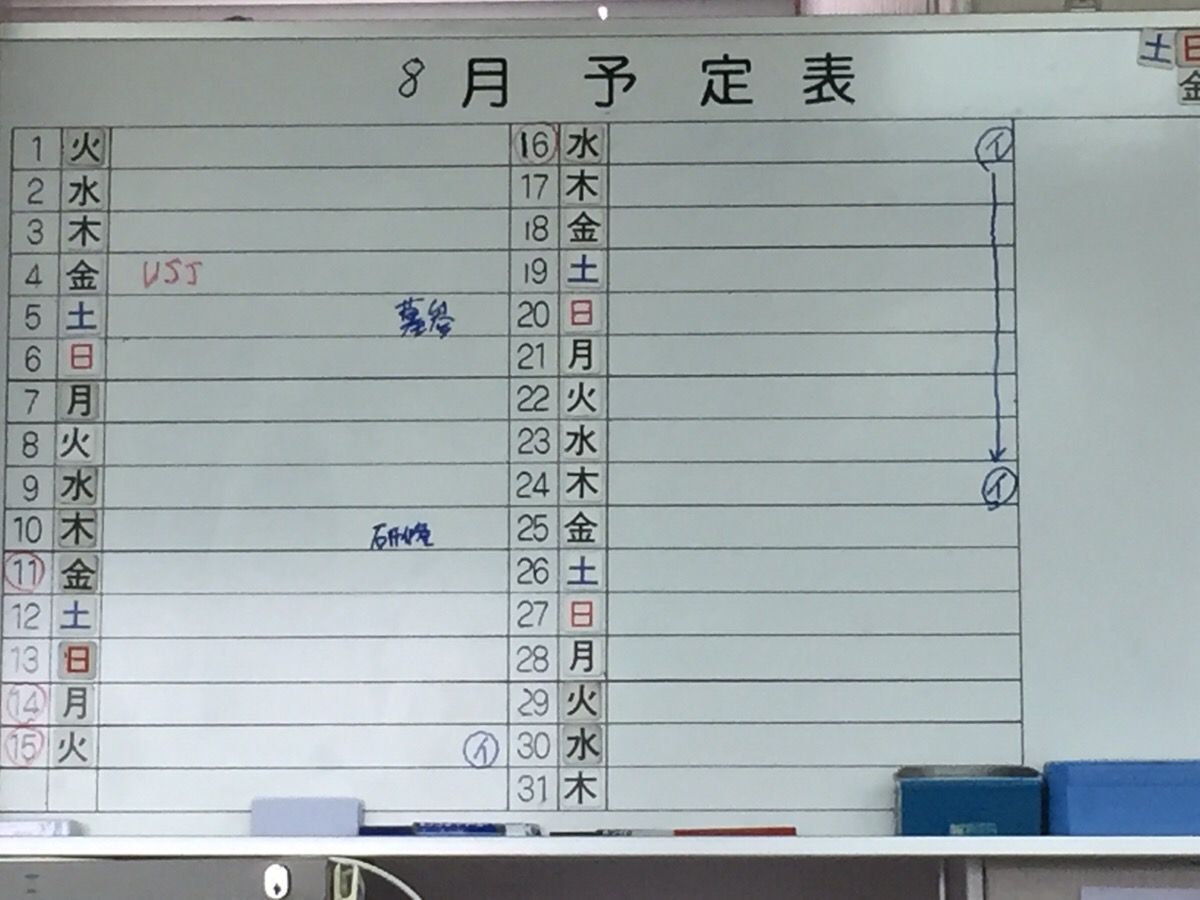 8月 予定表
土 日
金
1 火
2 水
3 木
4 金 USJ
5 土 墓参
6 日
7 月
8 火
9 水
10 木 研修
11 金
12 土
13 日
14 月
15 火 イ
16 水 イ
17 木
18 金
19 土
20 日
21 月
22 火
23 水
24 木 イ
25 金
26 土
27 日
28 月
29 火
30 水
31 木